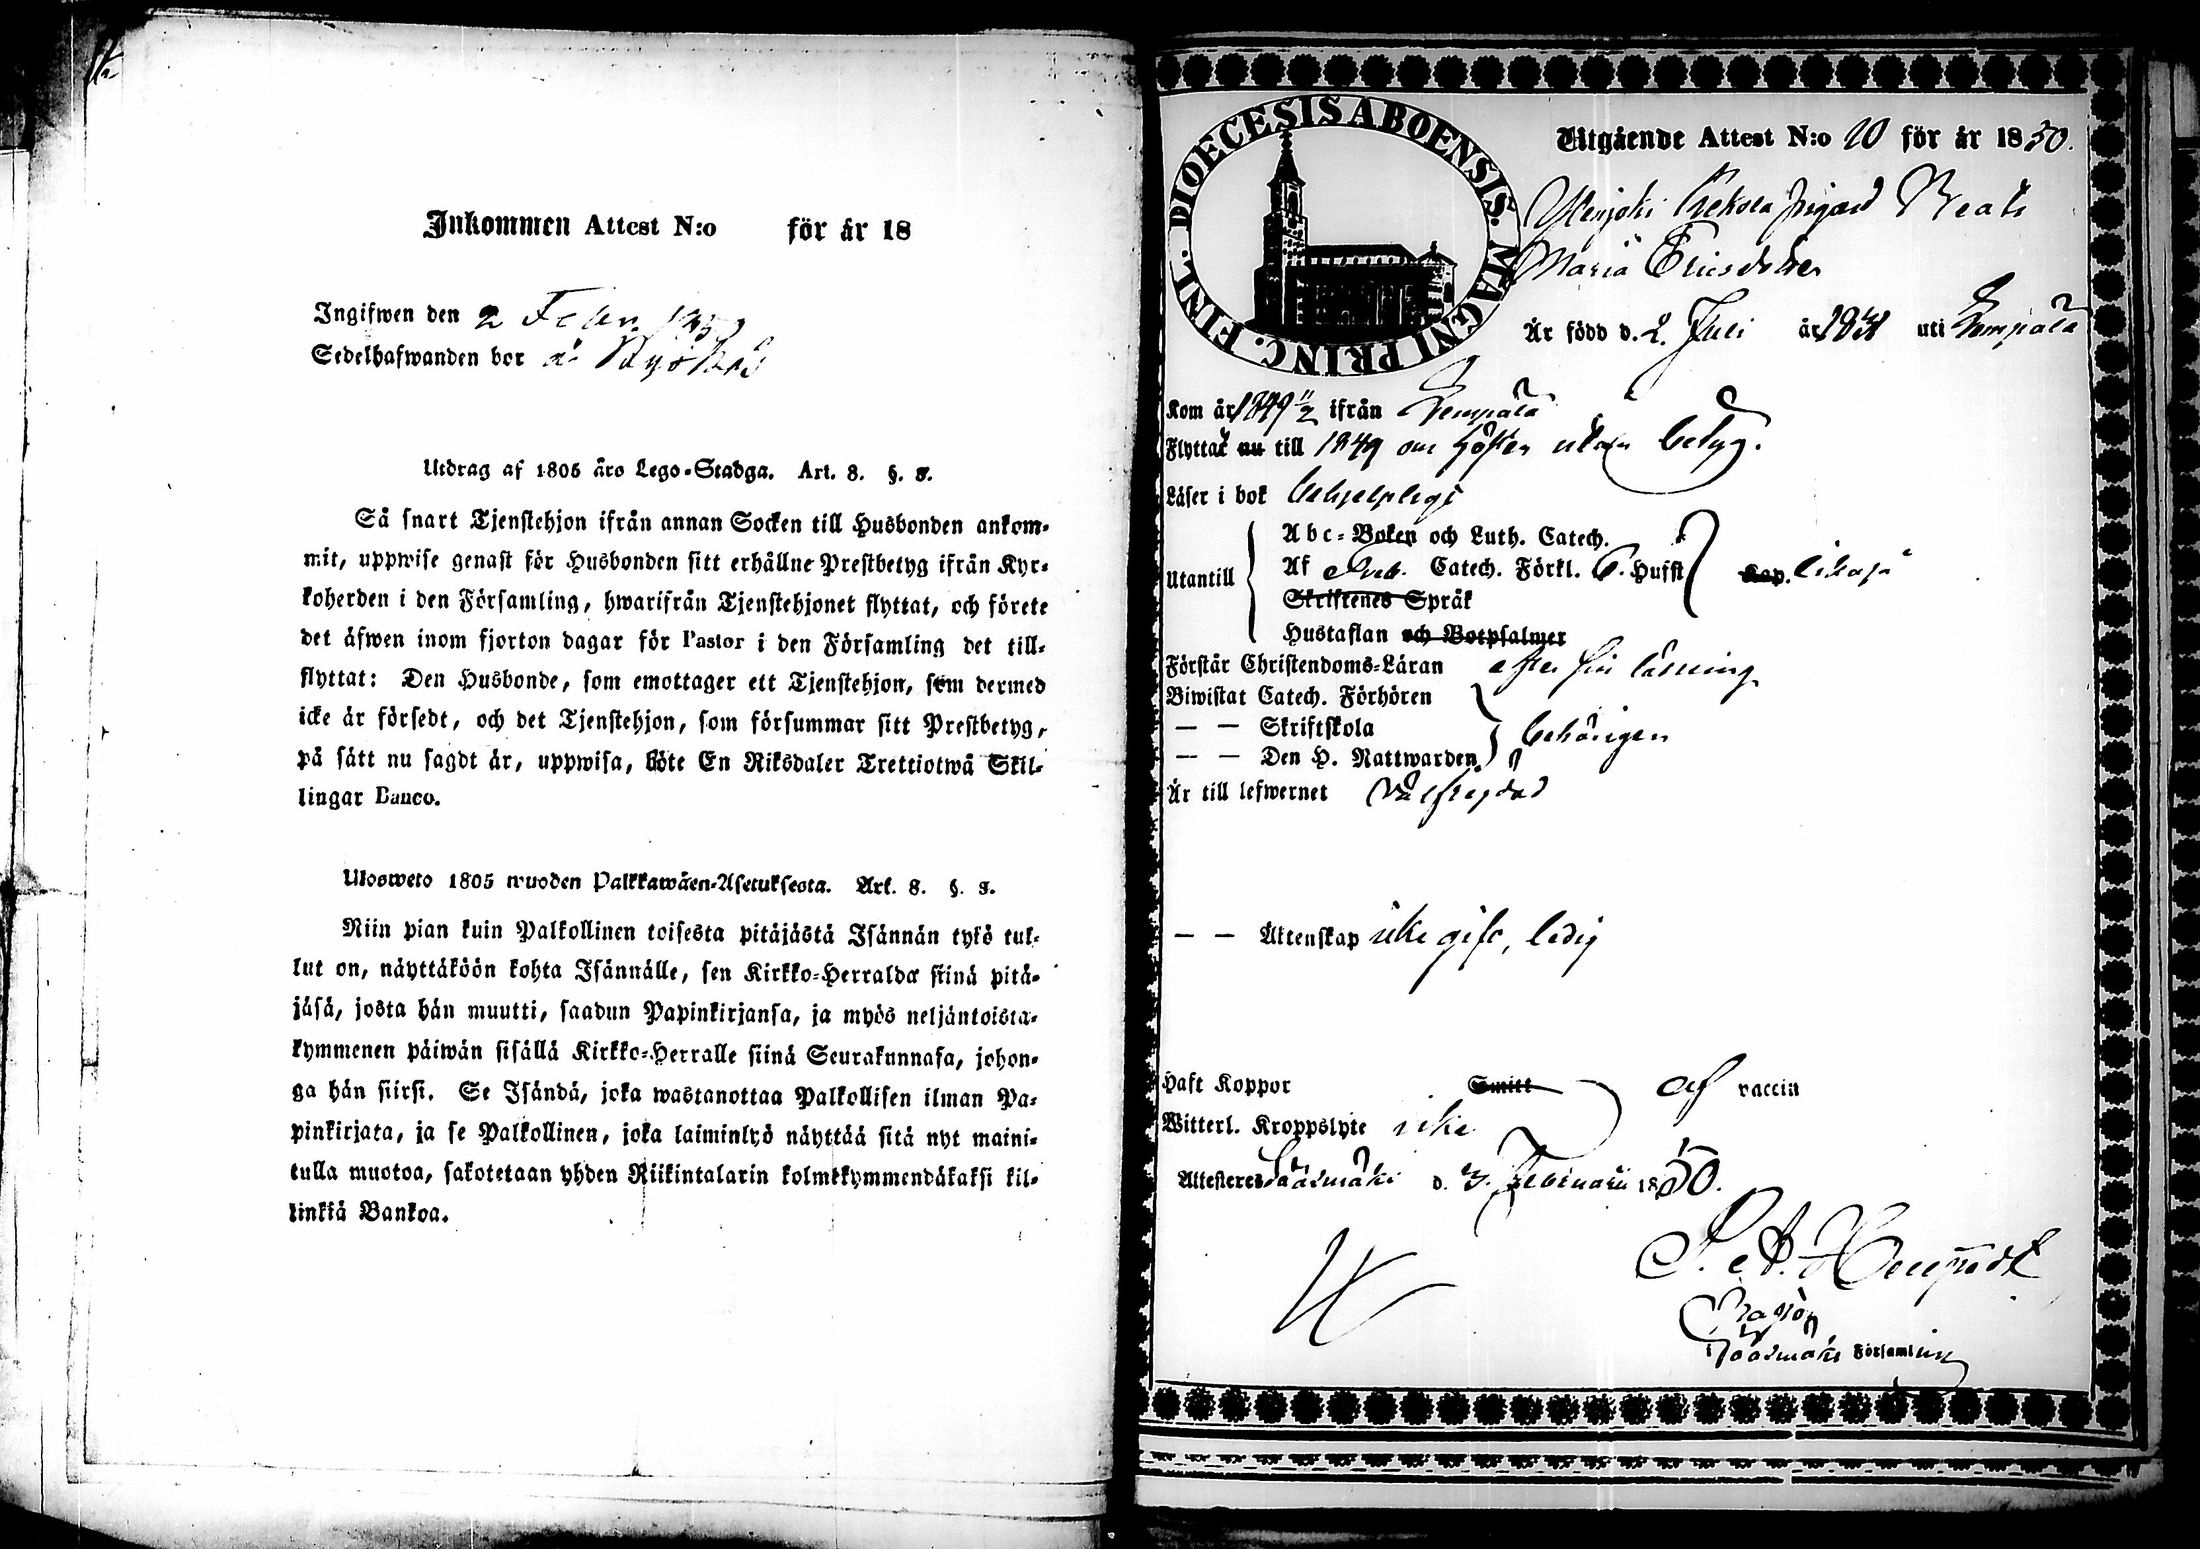 Inkommen Attest N:o för år 18
Ingifwen den 2 Febr. 1850
Sedelhafwanden bor å
Utdrag af 1805 års Lego-Stadga. Art. 8. §. 3.
Så snart Tjenstehjon ifrån annan Socken till Husbonden ankom-
mit, uppwise genast för Husbonden sitt erhållne Prestbetyg ifrån Kyr-
koherden i den Församling, hwarifrån Tjenstehjonet flyttat, och förete
det äfwen inom fjorton dagar för Pastor i den Församling det till-
flyttat: Den Husbonde, som emottager ett Tjenstehjon, som dermed
icke är försedt, och det Tjenstehjon, som försummar sitt Prestbetyg,
på sätt nu sagdt är, uppwisa, böte En Riksdaler Trettiotwå Skil-
lingar Banco.
Uloswето 1805 wuoden Palkkawäen-Asetuksesta. Art. 8. §. 3.
Niin pian kuin Palkollinen toisesta pitäjästä Isännän tykö tul-
lut on, näyttäköön kohta Isännälle, sen Kirkko-Herralda siinä pitä-
jäsä, josta hän muutti, saadun Papinkirjansa, ja myös neljäntoista-
kymmenen päiwän sisällä Kirkko-Herralle siinä Seurakunnasa, johon-
ga hän siirsi. Se Isändä, joka wastanottaa Palkollisen ilman Pa-
pinkirjata, ja se Palkollinen, joka laiminlyö näyttää sitä nyt maini-
tulla muotoa, sakotetaan yhden Riikintalarin kolmekymmendäkaksi kil-
linkiä Bankoa.
FINL. DIOECESIS ABOENSIS. MAGNI PRINC.
Utgående Attest N:o 20 för år 1850.
Beata
Maria Ericsdotter
År född d. 2. Juli år 1831 uti Lempälä
Kom år 1849 11/2 ifrån Lempälä
Flyttat nu till 1849 om hösten utan betyg.
Läser i bok behjelpligt
Utantill
Abc-Boken och Luth. Catech.
Af Sveb. Catech. Förkl. 6. Hufst Kap. likaså
Skriftenes Språk
Hustaflan och Botpsalmer
Förstår Christendoms-Läran efter sin läsning
Biwistat Catech. Förhören
— — Skriftskola behörigen
— — Den H. Nattwarden
Är till lefwernet välfrejdad
— — Äktenskap icke gift, ledig
Haft Koppor Smitt af vaccin
Witterl. Kroppslyte icke
Attesteres Sääsmäki d. 3. Februarii 1850.
Pastor
Sääsmäki Församling